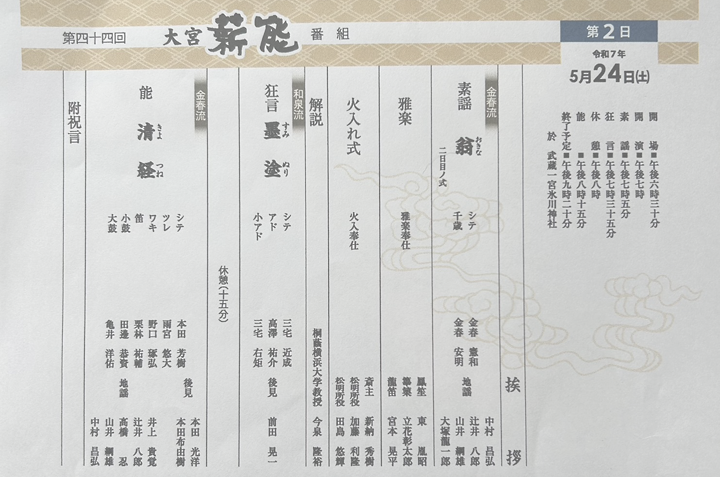 第四十四回 大宮薪能 番組
第2日
令和7年
5月24日(土)
開場■午後六時三十分
開演■午後七時
素謡■午後七時五分
狂言■午後七時三十五分
休憩■午後八時
能■午後八時十五分
終了予定■午後九時二十分
於 武蔵一宮氷川神社
挨拶
金春流
素謡 翁 おきな 二日目ノ式
シテ 金春 憲和
千歳 金春 安明
地謡
中村 昌弘
辻井 八郎
山井 綱雄
大塚龍一郎
雅楽
雅楽奉仕
鳳笙 東 胤昭
篳篥 立花彰太郎
龍笛 宮本 晃平
火入れ式
火入奉仕
斎主 新納 秀樹
松明所役 加藤 利隆
松明所役 田島 悠輝
解説
桐蔭横浜大学教授 今泉 隆裕
和泉流
狂言 墨塗 すみ ぬり
シテ 三宅 近成
アド 高澤 祐介
小アド 三宅 右矩
後見 前田 晃一
休憩(十五分)
金春流
能 清経 きよ つね
シテ 本田 芳樹
ツレ 雨宮 悠大
ワキ 野口 琢弘
笛 栗林 祐輔
小鼓 田邊 恭資
大鼓 亀井 洋佑
後見
本田 光洋
本田布由樹
地謡
井上 貴覚
辻井 八郎
高橋 忍
山井 綱雄
中村 昌弘
附祝言